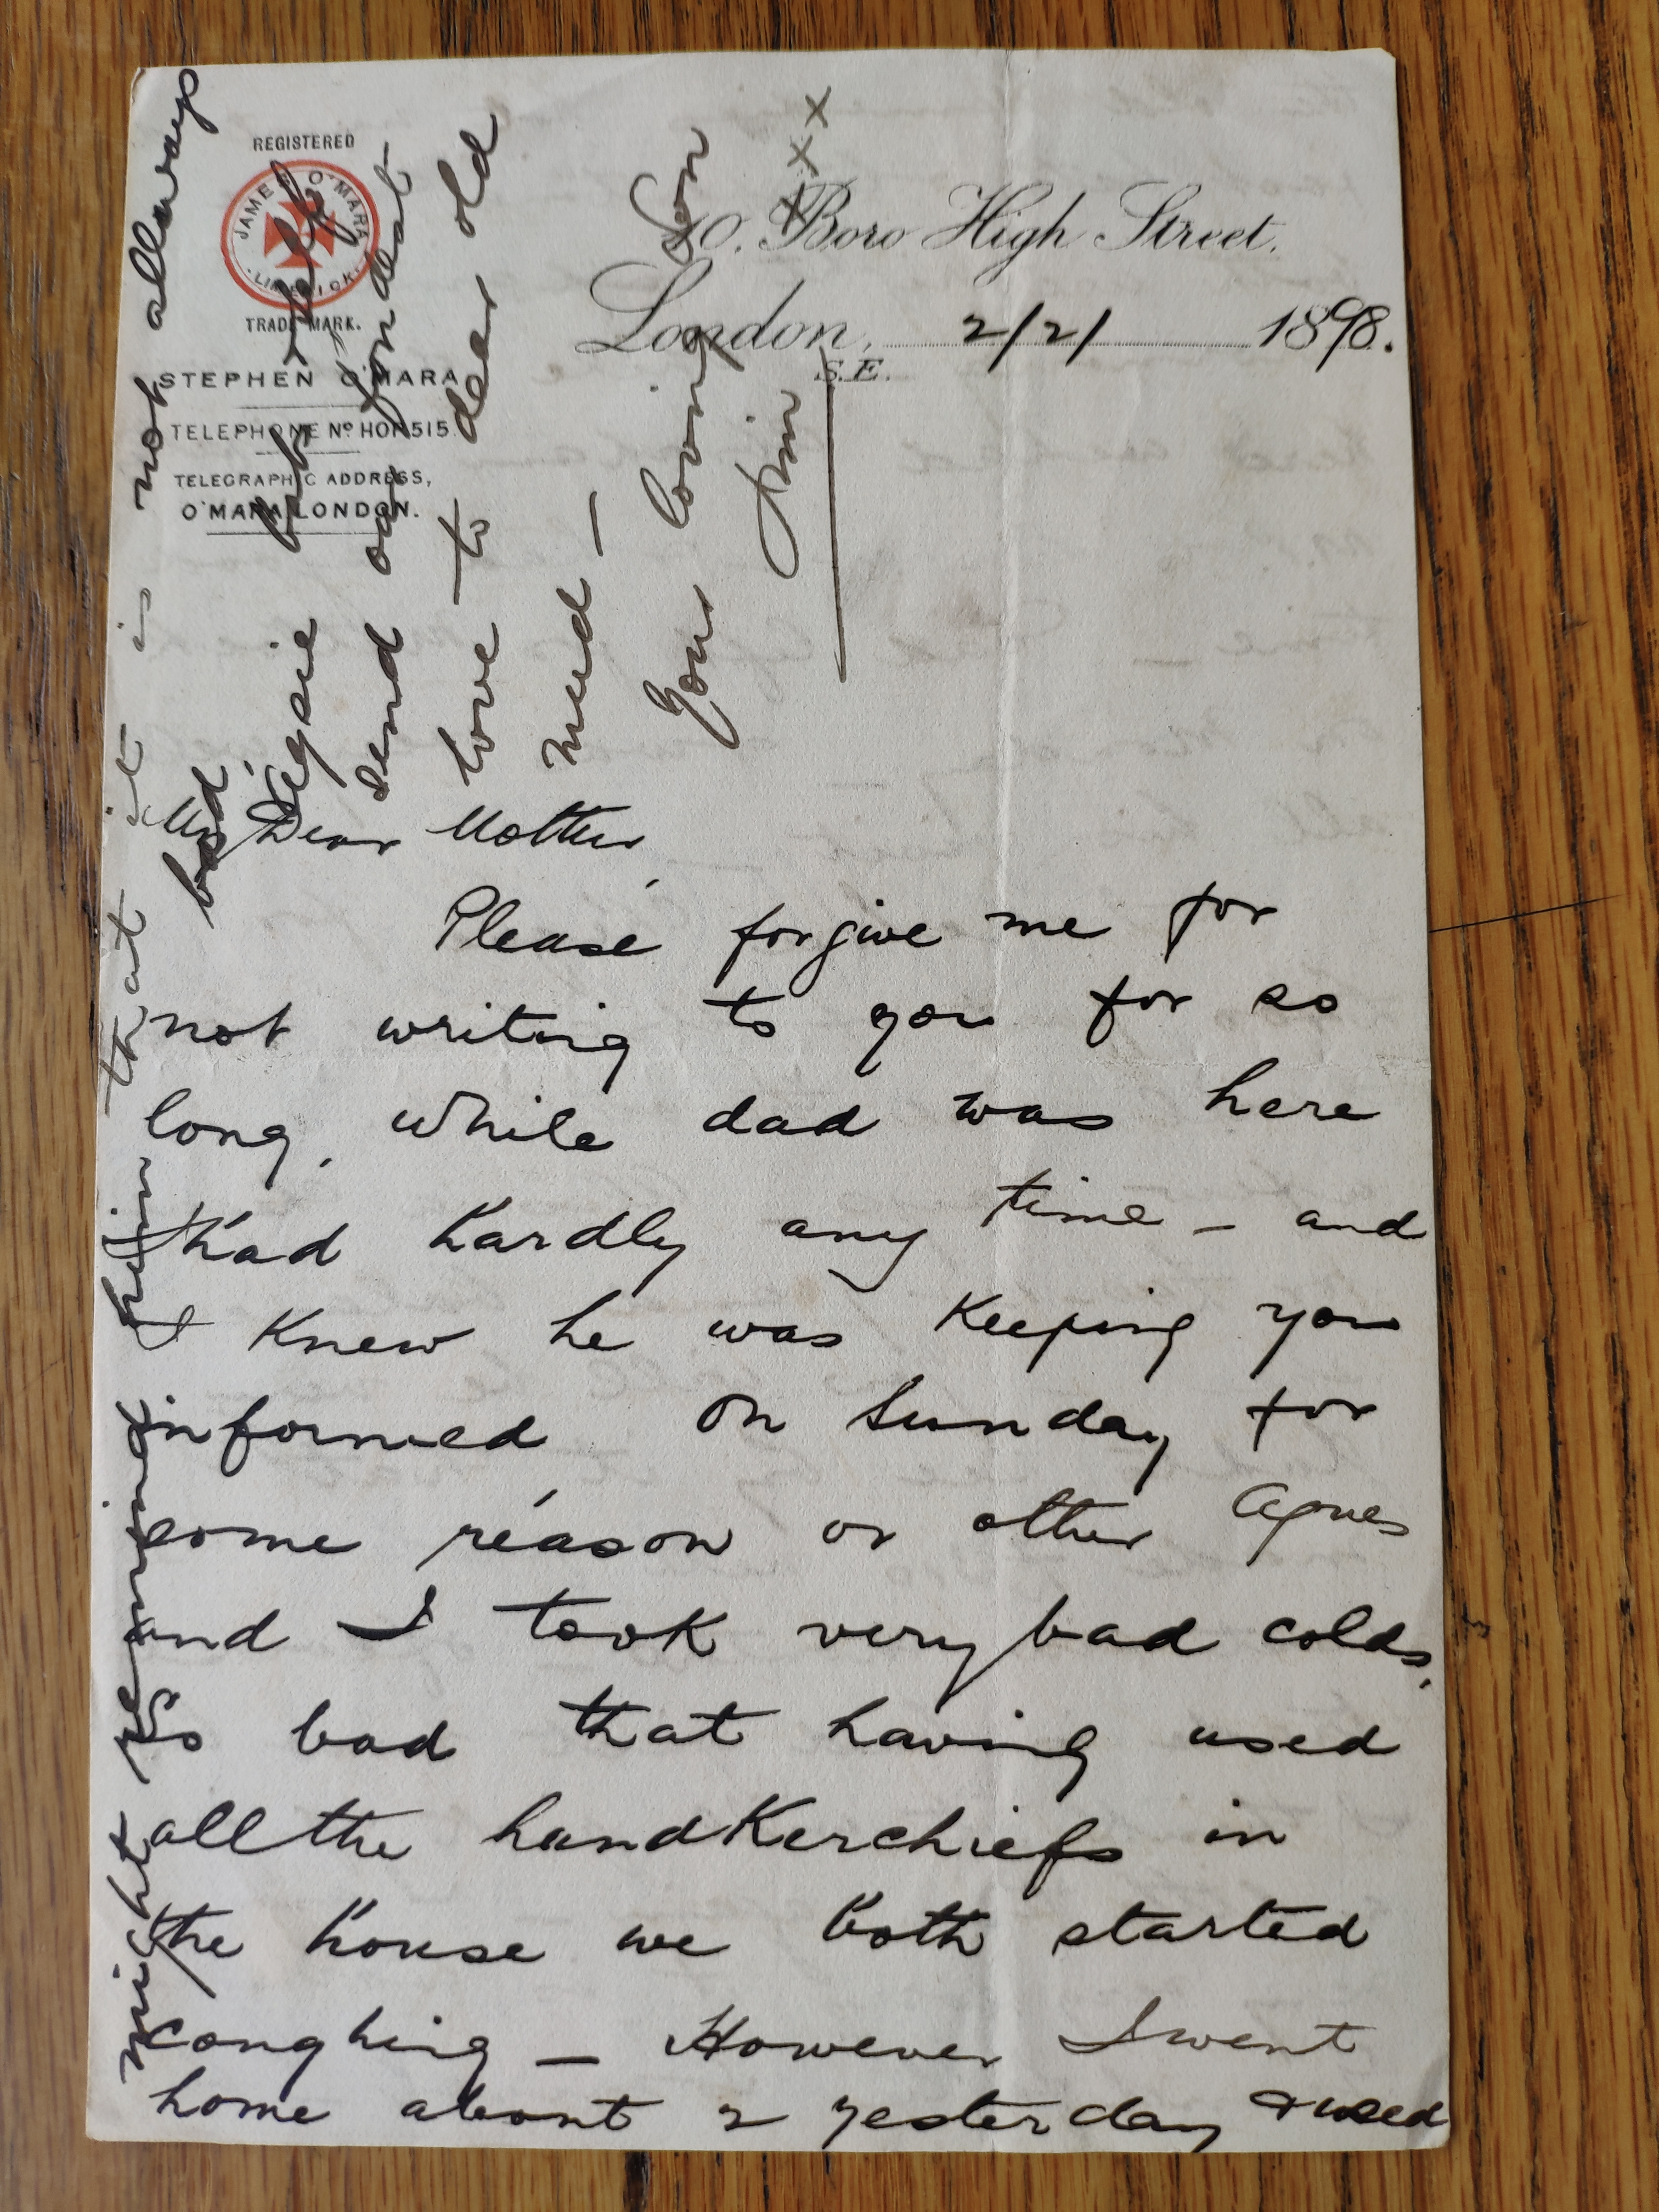 REGISTERED
JAMES O'MARA
· LIMERICK ·
TRADE MARK.
STEPHEN O'MARA
TELEPHONE Nº HOP. 515.
TELEGRAPHIC ADDRESS,
O'MARA LONDON.
40. Boro High Street.
London, 2/2/ 1898.
S.E.
My Dear Mother
Please forgive me for
not writing to you for so
long, while dad was here
I had hardly any time – and
I knew he was keeping you
informed On Sunday for
some reason or other Agnes
and I took very bad colds,
so bad that having used
all the handkerchiefs in
the house we both started
coughing – However I went
home about 2 yesterday & used
might remind him that it is not allways
bad
send our fondest
love – to dear old
Mud –
Your loving Son
Jim
x x x